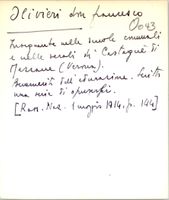 Olivieri don Francesco
0043
Insegnante nelle scuole comunali
e nelle serali di Castagnè di
Mezzane (Verona).
dell'educazione. Scritto
una serie di opuscoli.
[Rass. Naz. 1 maggio 1914, p. 144]